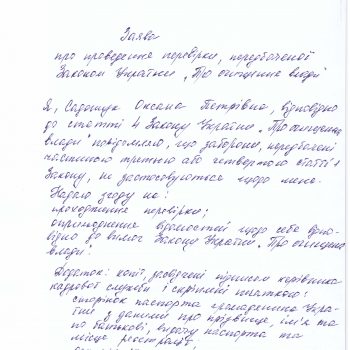 Заява
про проведення перевірки, передбаченої
Законом України „Про очищення влади"
Я, Оксана Петрівна, відповідно
до статті 4 Закону України „Про очищення
влади" повідомляю, що заборони, передбачені
частиною третьою або четвертою статті 1
Закону, не застосовуються щодо мене.
Надаю згоду на:
проходження перевірки;
оприлюднення відомостей щодо себе відпо-
відно до вимог Закону України „Про очищення
влади".
Додаток: копії, засвідчені підписом керівника
кадрової служби і скріплені печаткою:
сторінок паспорта громадянина Укра-
їни з даними про прізвище, ім'я та
по батькові, видачу паспорта та
місце реєстрації;